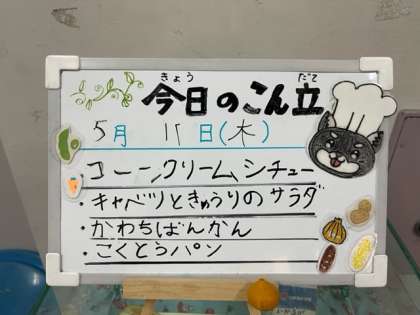 きょう だて
今日のこん立
5月 11日(木)
コーンクリームシチュー
・キャベツときゅうりのサラダ
・かわちばんかん
・こくとうパン